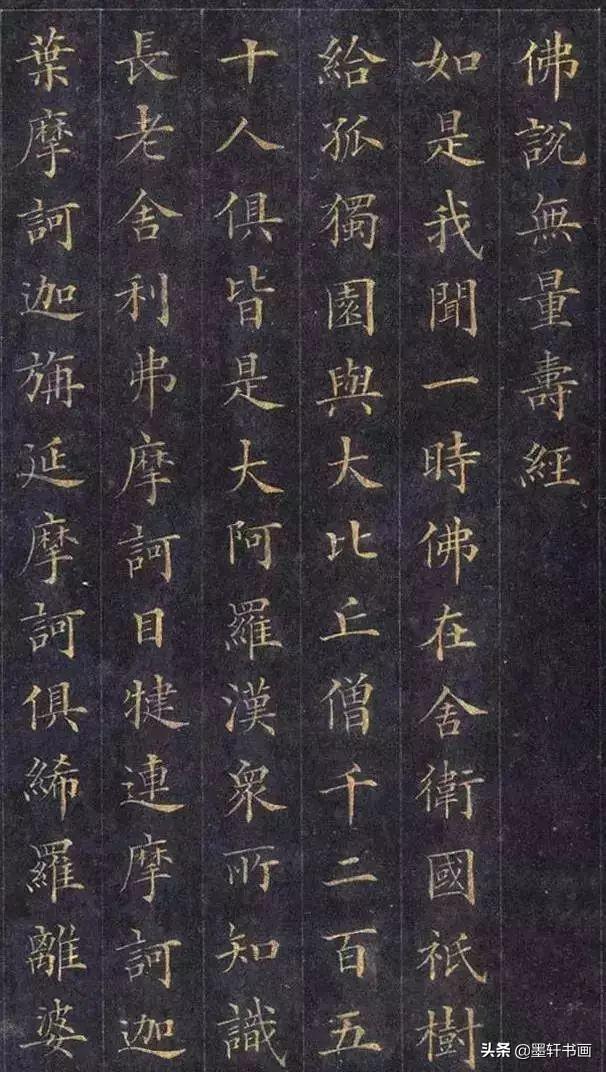 佛說無量壽經
如是我聞一時佛在舍衛國祇樹
給孤獨園與大比丘僧千二百五
十人俱皆是大阿羅漢眾所知識
長老舍利弗摩訶目犍連摩訶迦
葉摩訶迦旃延摩訶俱絺羅離婆
头条 @墨轩书画